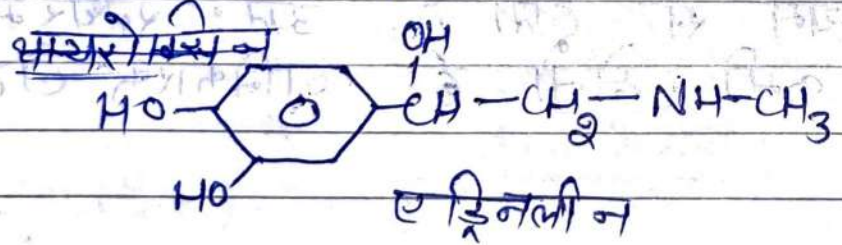 थायरोक्सिन
OH
HO- -CH-CH2-NH-CH3
HO
एड्रिनलीन